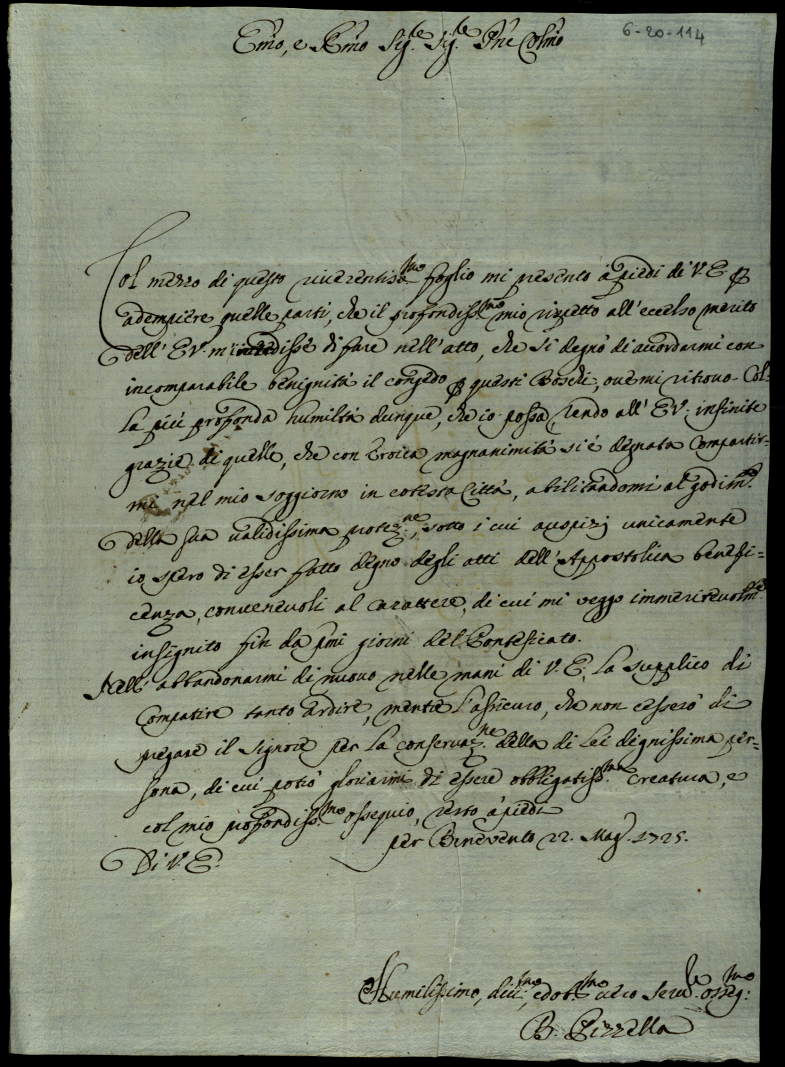 6-20-114
Emo, e Rmo Sig.re Sig.re Pne Colmo
Col mezzo di questo riverentiss.mo foglio mi presento à piedi di V. E. p
adempiere quelle parti, che il profondiss.mo mio rispetto all'eccelso merito
dell'E.V. m' disse di fare nell'atto, che si degnò di accordarmi con
incomparabile benignità il congedo p questi Boschi, ove mi ritrovo. Col-
la più profonda humiltà dunque, che io possa, rendo all'E.V. infinite
grazie di quelle, che con eroica magnanimità si è degnata compartir=
mi nel mio soggiorno in cotesta Città, abilitandomi al godim.to
della sua validissima protez.ne, sotto i cui auspizj unicamente
io spero di esser fatto degno degli atti dell'Appostolica benefi=
cenza, convenevoli al carattere, di cui mi veggo immeritevolm.e
insignito fin da pmi giorni del Pontificato.
Nell'abbandonarmi di nuovo nelle mani di V. E. la supplico di
compatire tanto ardire, mentre l'assicuro, che non cesserò di
pregare il Signore per la conservaz.ne della di Lei dignissima per=
sona, di cui potrò gloriarmi di essere obbligatiss.ma creatura, e
col mio profondiss.mo ossequio, resto à piedi
per Benevento 22. Mag. 1725.
Di V. E.
Humilissimo, ed obb.mo vero Serv.re osseq:mo
B. Pizzella